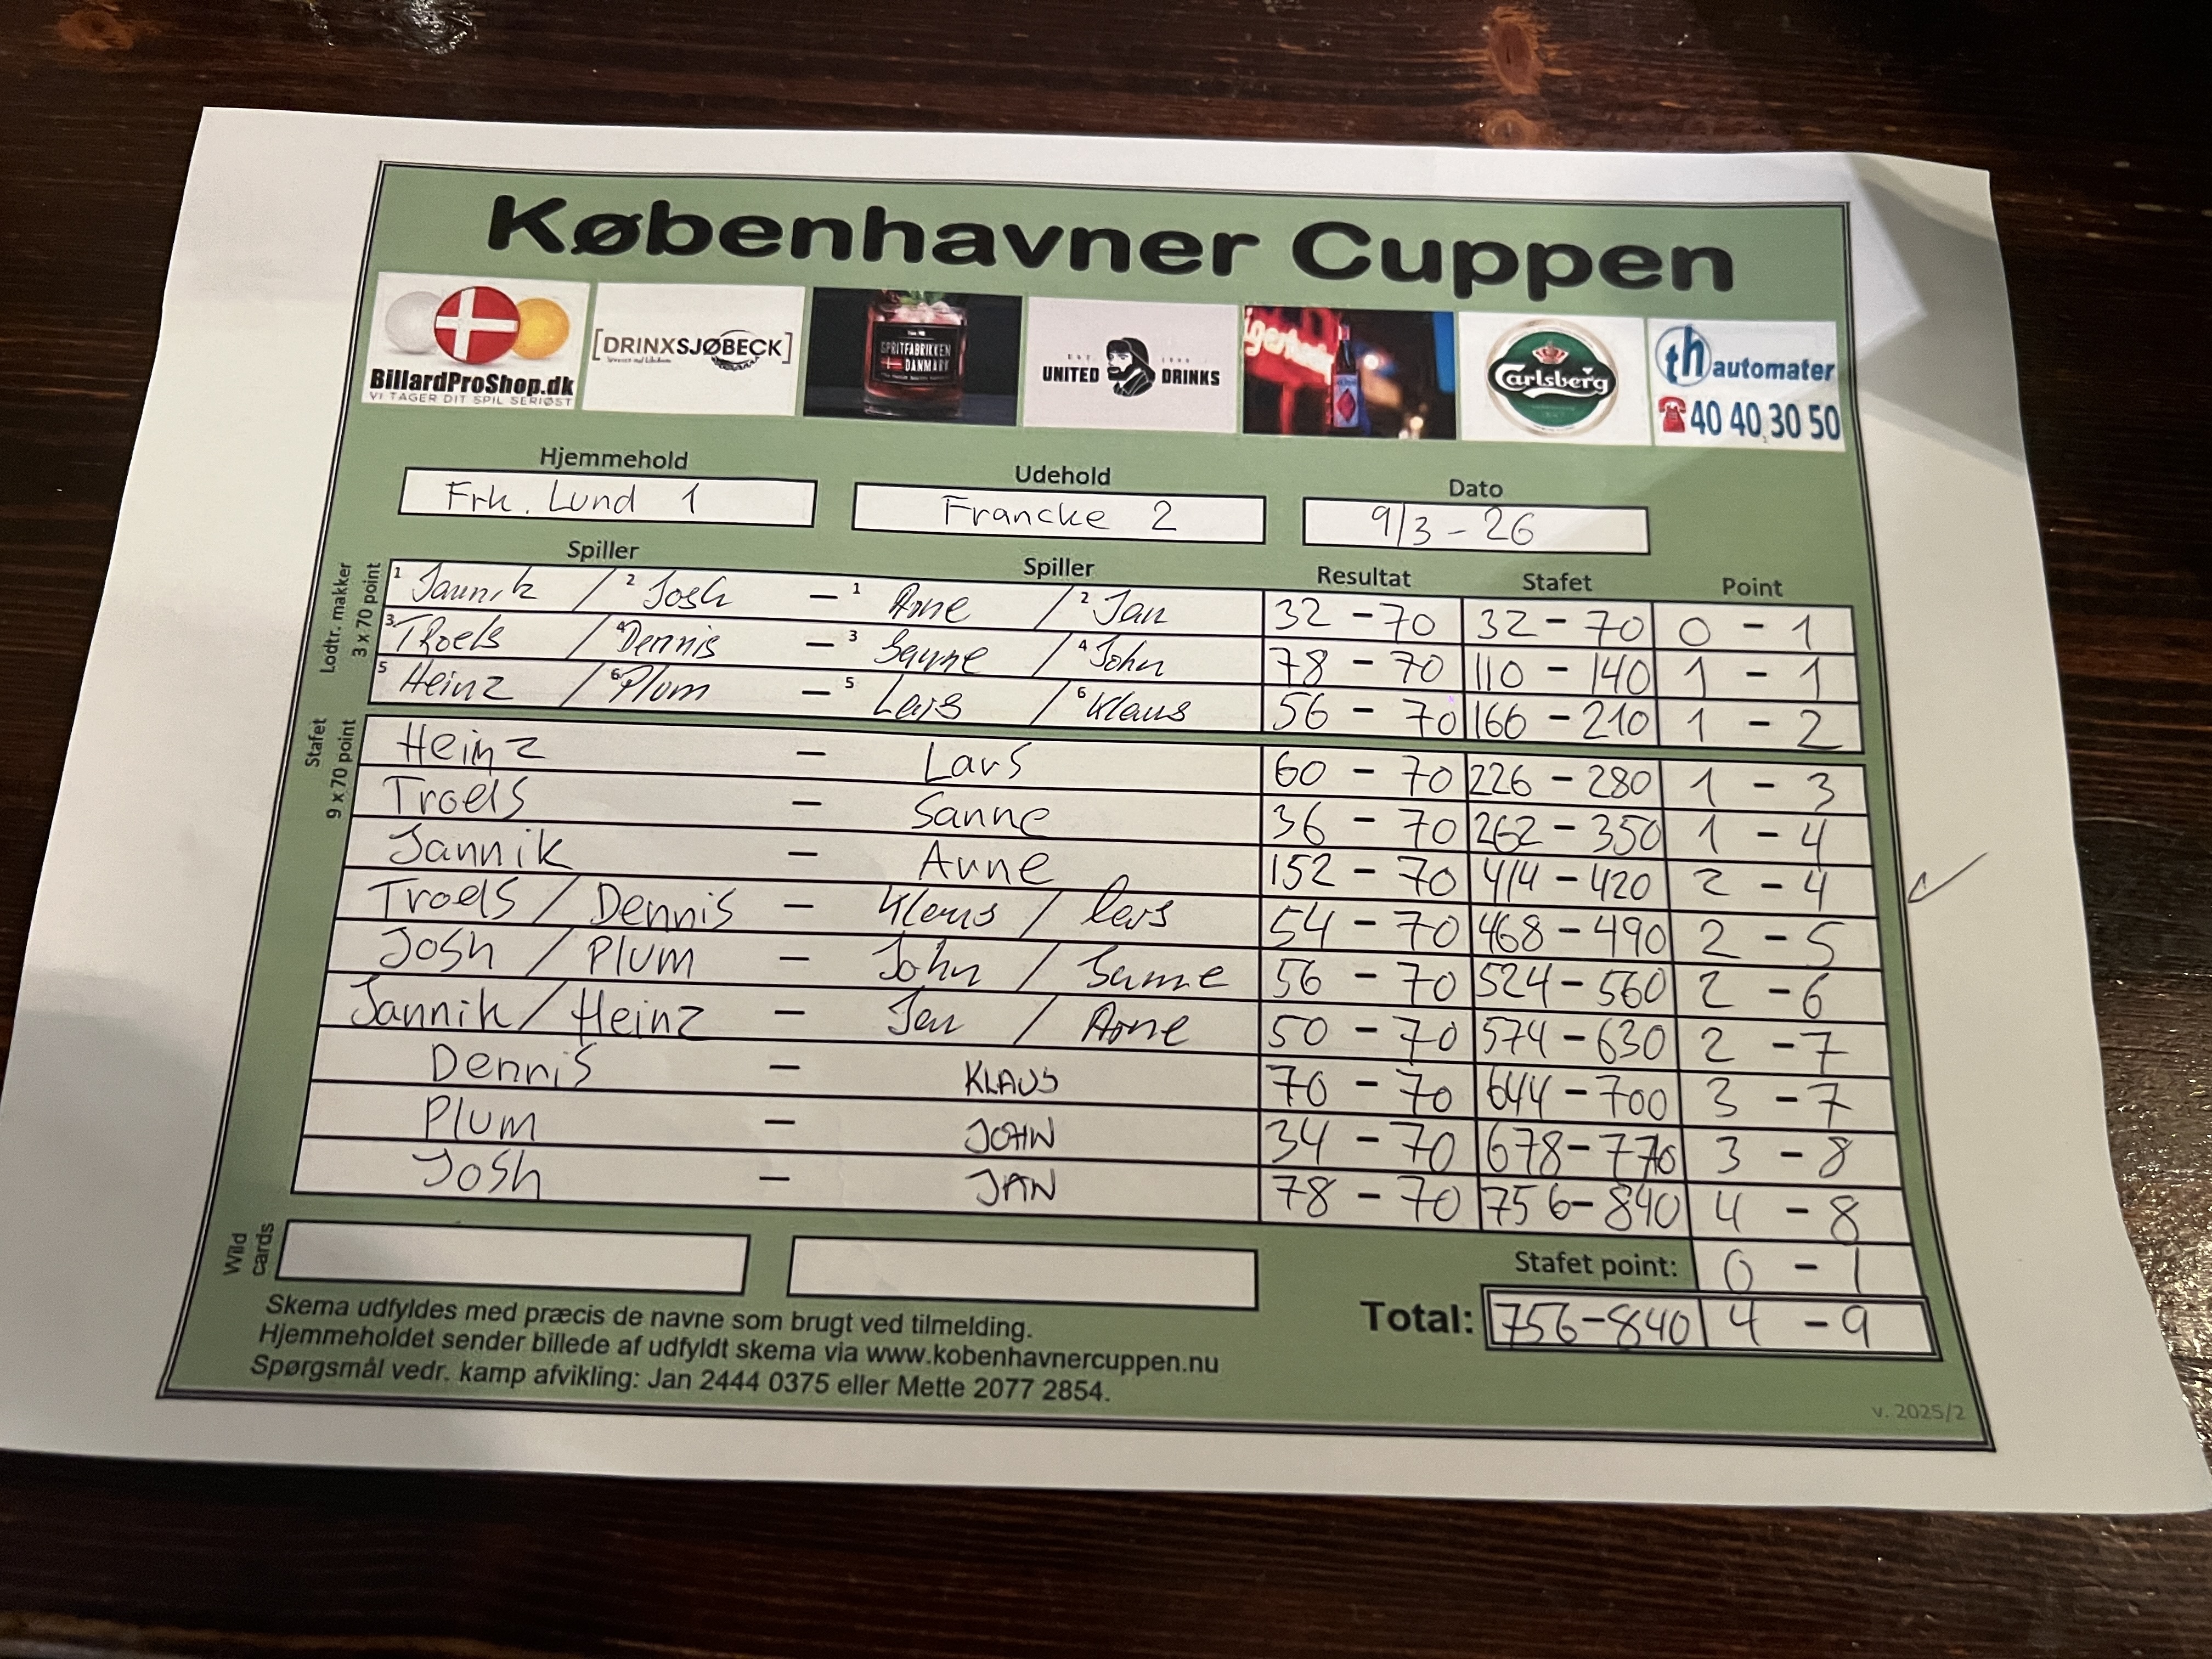 Københavner Cuppen
BillardProShop.dk
VI TAGER DIT SPIL SERIØST
[DRINXSJØBECK]
SPRITFABRIKKEN
DANMARK
EST. 
UNITED DRINKS
Carlsberg
th automater
40 40 30 50
Hjemmehold Udehold Dato
Frk. Lund 1 Francke 2 9/3 - 26
Spiller Spiller Resultat Stafet Point
Lodtr. makker
3 x 70 point
1 Jannik / 2 Josh - 1 Arne / 2 Jan 32 - 70 32 - 70 0 - 1
3 Troels / 4 Dennis - 3 Sanne / 4 John 78 - 70 110 - 140 1 - 1
5 Heinz / 6 Plum - 5 Lars / 6 Klaus 56 - 70 166 - 210 1 - 2
Stafet
9 x 70 point
Heinz - Lars 60 - 70 226 - 280 1 - 3
Troels - Sanne 36 - 70 262 - 350 1 - 4
Jannik - Arne 152 - 70 414 - 420 2 - 4
Troels / Dennis - Klaus / Lars 54 - 70 468 - 490 2 - 5
Josh / Plum - John / Sanne 56 - 70 524 - 560 2 - 6
Jannik / Heinz - Jan / Arne 50 - 70 574 - 630 2 - 7
Dennis - KLAUS 70 - 70 644 - 700 3 - 7
Plum - JOHN 34 - 70 678 - 770 3 - 8
Josh - JAN 78 - 70 756 - 840 4 - 8
Wild
cards
Stafet point: 0 - 1
Total: 756 - 840 4 - 9
Skema udfyldes med præcis de navne som brugt ved tilmelding.
Hjemmeholdet sender billede af udfyldt skema via www.kobenhavnercuppen.nu
Spørgsmål vedr. kamp afvikling: Jan 2444 0375 eller Mette 2077 2854.
v. 2025/2